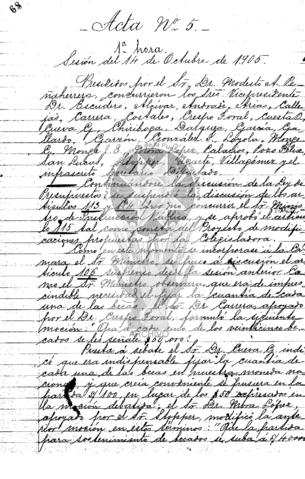 68
Acta Nº 5.
1ª hora.
Sesión del 14 de Octubre de 1905.
Presididos por el Sr. Dr. Modesto A. Pe-
ñaherrera, concurrieron los Srs. Vicepresidente
Dr. Escudero, Alcívar, Andrade, Arias, Calle-
jas, Carrera, Costales, Crespo Toral, Cuesta O.
Cueva G. Chiriboga, Dalgo, García, Ga-
llardo, Garzón, González S., Loyola, Monge
C., Monge
San Lucas, Stopper, Ugarte, Villagómez y el
infrascrito Secretario
Continuándose la discusión de la Ley de
Presupuestos, se puso en discusión de los ar-
tículos 113
tro de Instrucción Pública y se aprobó el artícu-
lo 115 tal como consta del Proyecto de modifi-
caciones propuestas por la Colegisladora.
Como en este momento se presentase a la Cá-
mara el Sr. Ministro, se puso a discusión el ar-
tículo 106 suspenso desde la sesión anterior.
el Sr. Ministro observase que era de impres-
cindible necesidad el fijar la cuantía de cada
una de las becas, el Dr. Carrera apoyado
por el Dr. Crespo Toral, formuló la siguiente
moción: "Que a cada uno de los veinticinco be-
cados se les señale $50 oro".
Puesta a debate el Sr. Dr. Cueva G. indi-
có que era indispensable fijar la cuantía de
cada una de las becas en nuestra moneda na-
cional y que creía conveniente se pusiera en la
partida $100, en lugar de los $50 expresados en
la moción debatida, el Sr. Dr. Mora López,
apoyado por el Dr. Stopper, modificó la ante-
rior moción en estos términos: "Que la partida
para sostenimiento de becados se suba a $40000